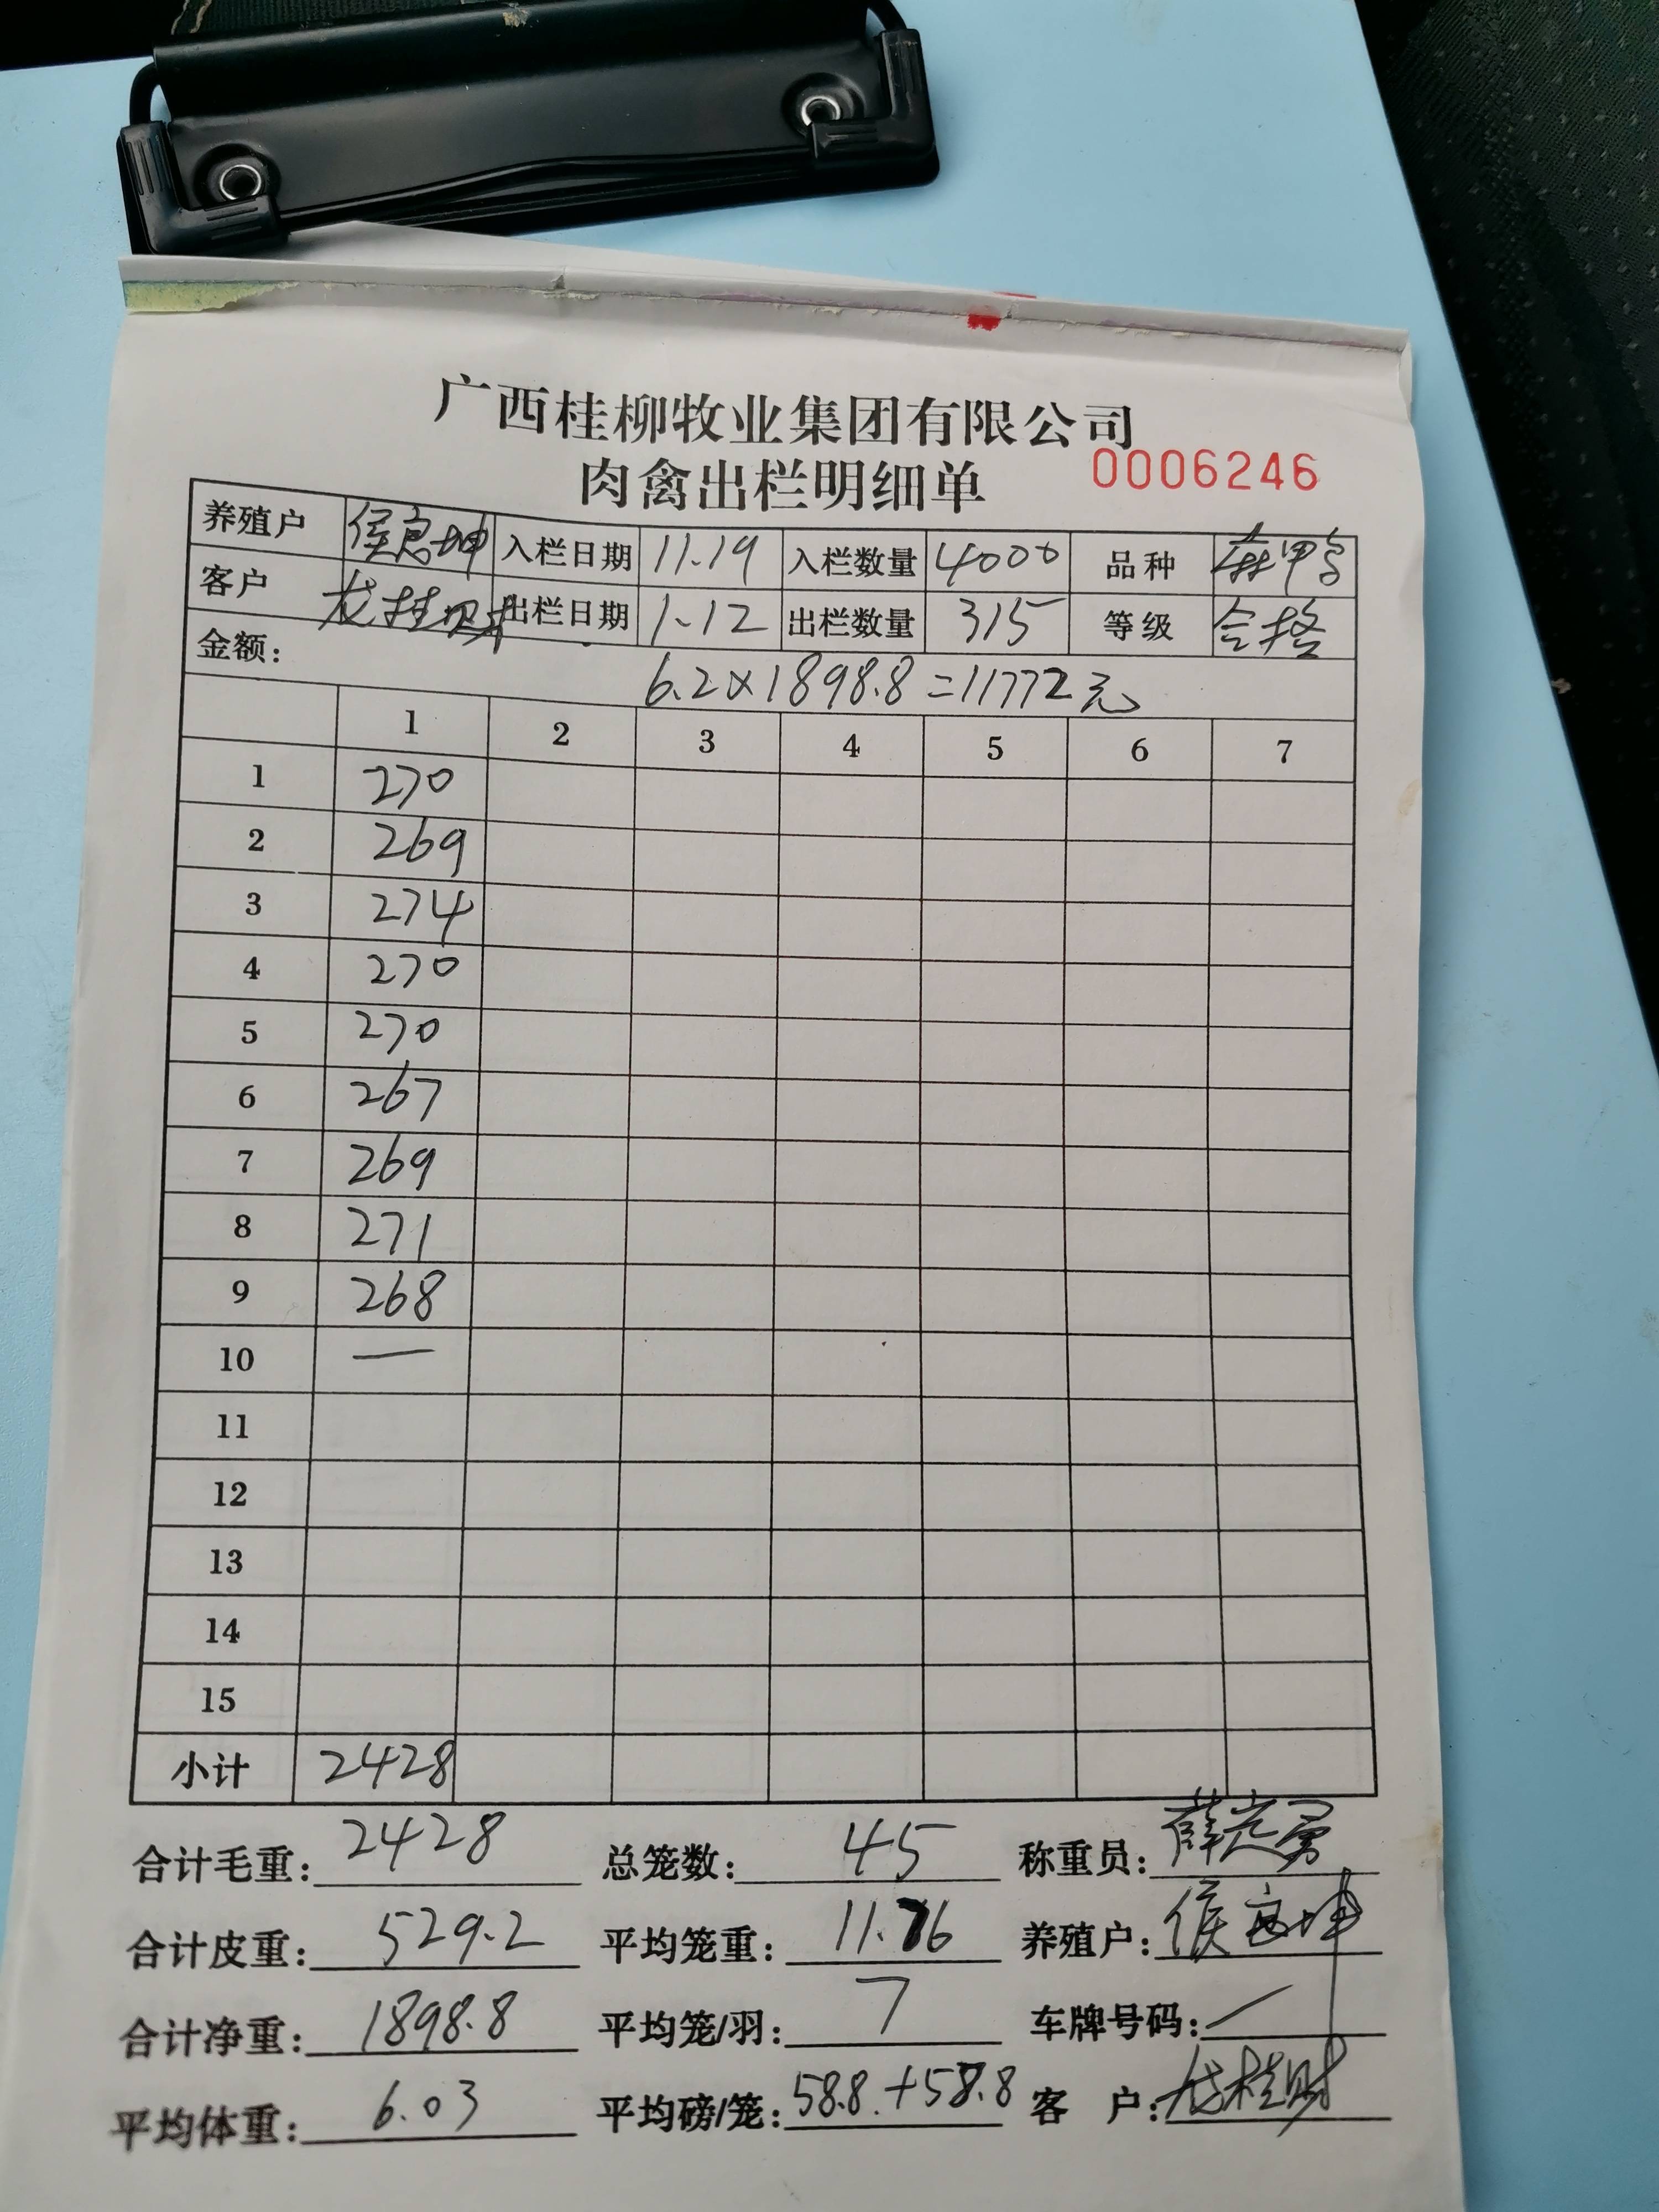 广西桂柳牧业集团有限公司
肉禽出栏明细单 0006246
养殖户 侯良坤 入栏日期 11.19 入栏数量 4000 品种 麻甲鸟
客户 龙桂财 出栏日期 1.12 出栏数量 315 等级 合格
金额: 6.2×1898.8=11772元
1 2 3 4 5 6 7
1 270
2 269
3 274
4 270
5 270
6 267
7 269
8 271
9 268
10 —
11
12
13
14
15
小计 2428
合计毛重: 2428 总笼数: 45 称重员:
合计皮重: 529.2 平均笼重: 11.76 养殖户: 侯良坤
合计净重: 1898.8 平均笼/羽: 7 车牌号码: /
平均体重: 6.03 平均磅/笼: 58.8+58.8 客 户: 龙桂财